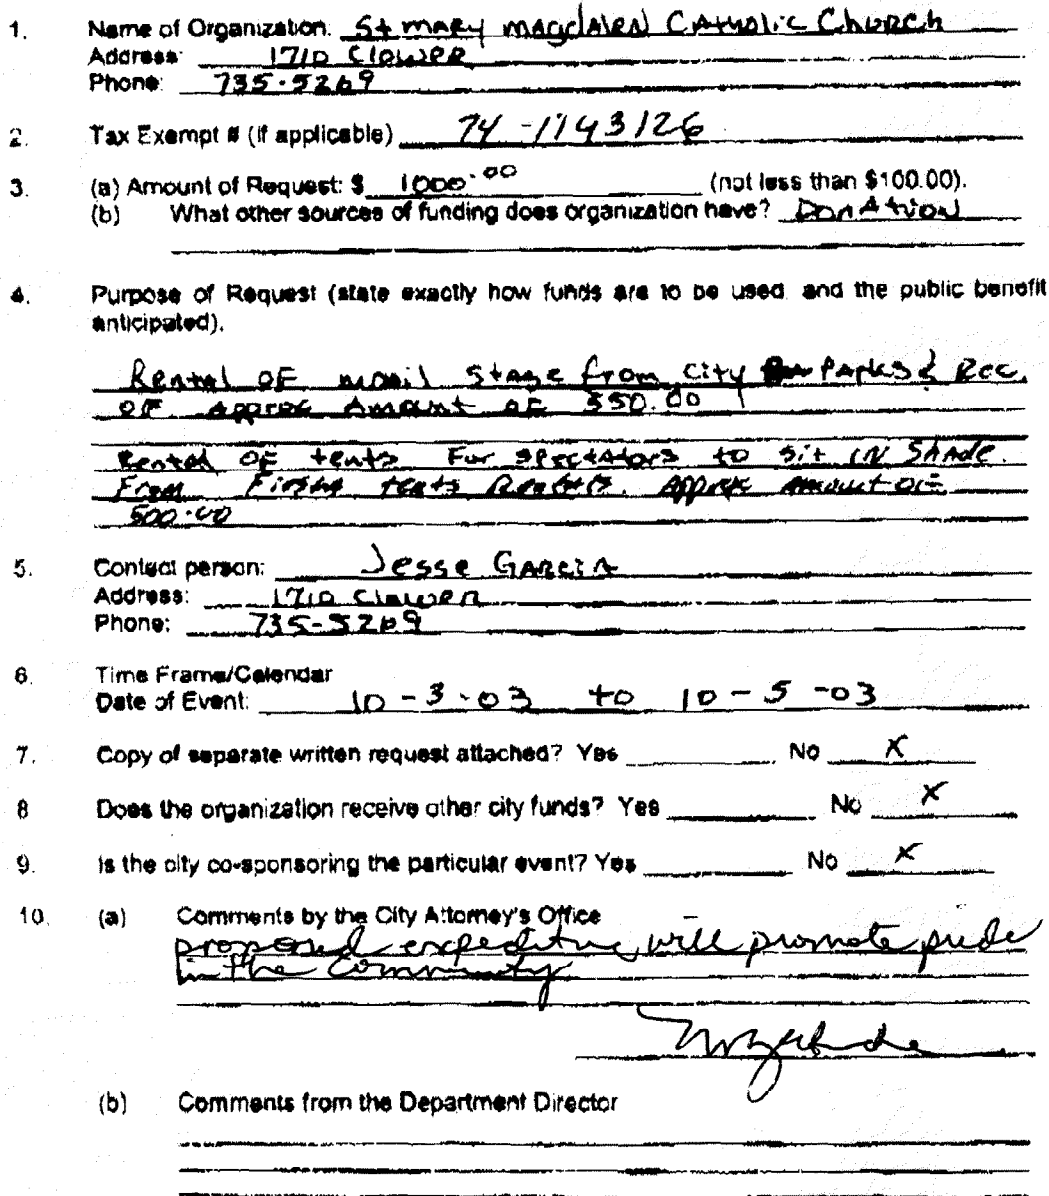 1. Name of Organization: St mary magdalen Catholic Church
Address: 1710 Clower
Phone: 735-5269
2. Tax Exempt # (if applicable) 74-1143126
3. (a) Amount of Request: $ 1000.00 (not less than $100.00).
(b) What other sources of funding does organization have? Donation
4. Purpose of Request (state exactly how funds are to be used and the public benefit
anticipated).
Rental of mobil Stage from City Parks & Rec.
of Approx Amount of 550.00
Rental of tents For spectators to sit in Shade.
From tents Rentals. Approx Amount of
500.00
5. Contact person: Jesse Garcia
Address: 1710 Clower
Phone: 735-5269
6. Time Frame/Calendar
Date of Event: 10-3-03 to 10-5-03
7. Copy of separate written request attached? Yes No X
8 Does the organization receive other city funds? Yes No X
9. Is the city co-sponsoring the particular event? Yes No X
10. (a) Comments by the City Attorney's Office
proposed expediture will promote pride
in the Community
(b) Comments from the Department Director